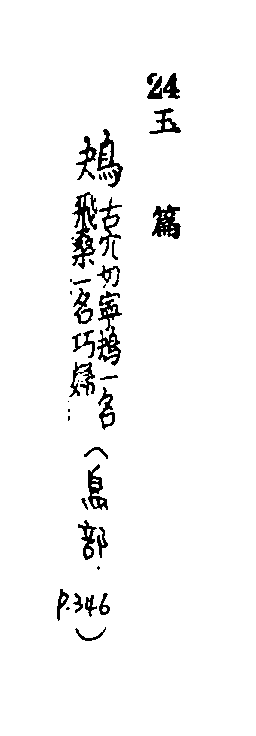 24玉篇
鴂古穴切寧鴂一名
飛桑一名巧婦…
(鳥部. P.346)